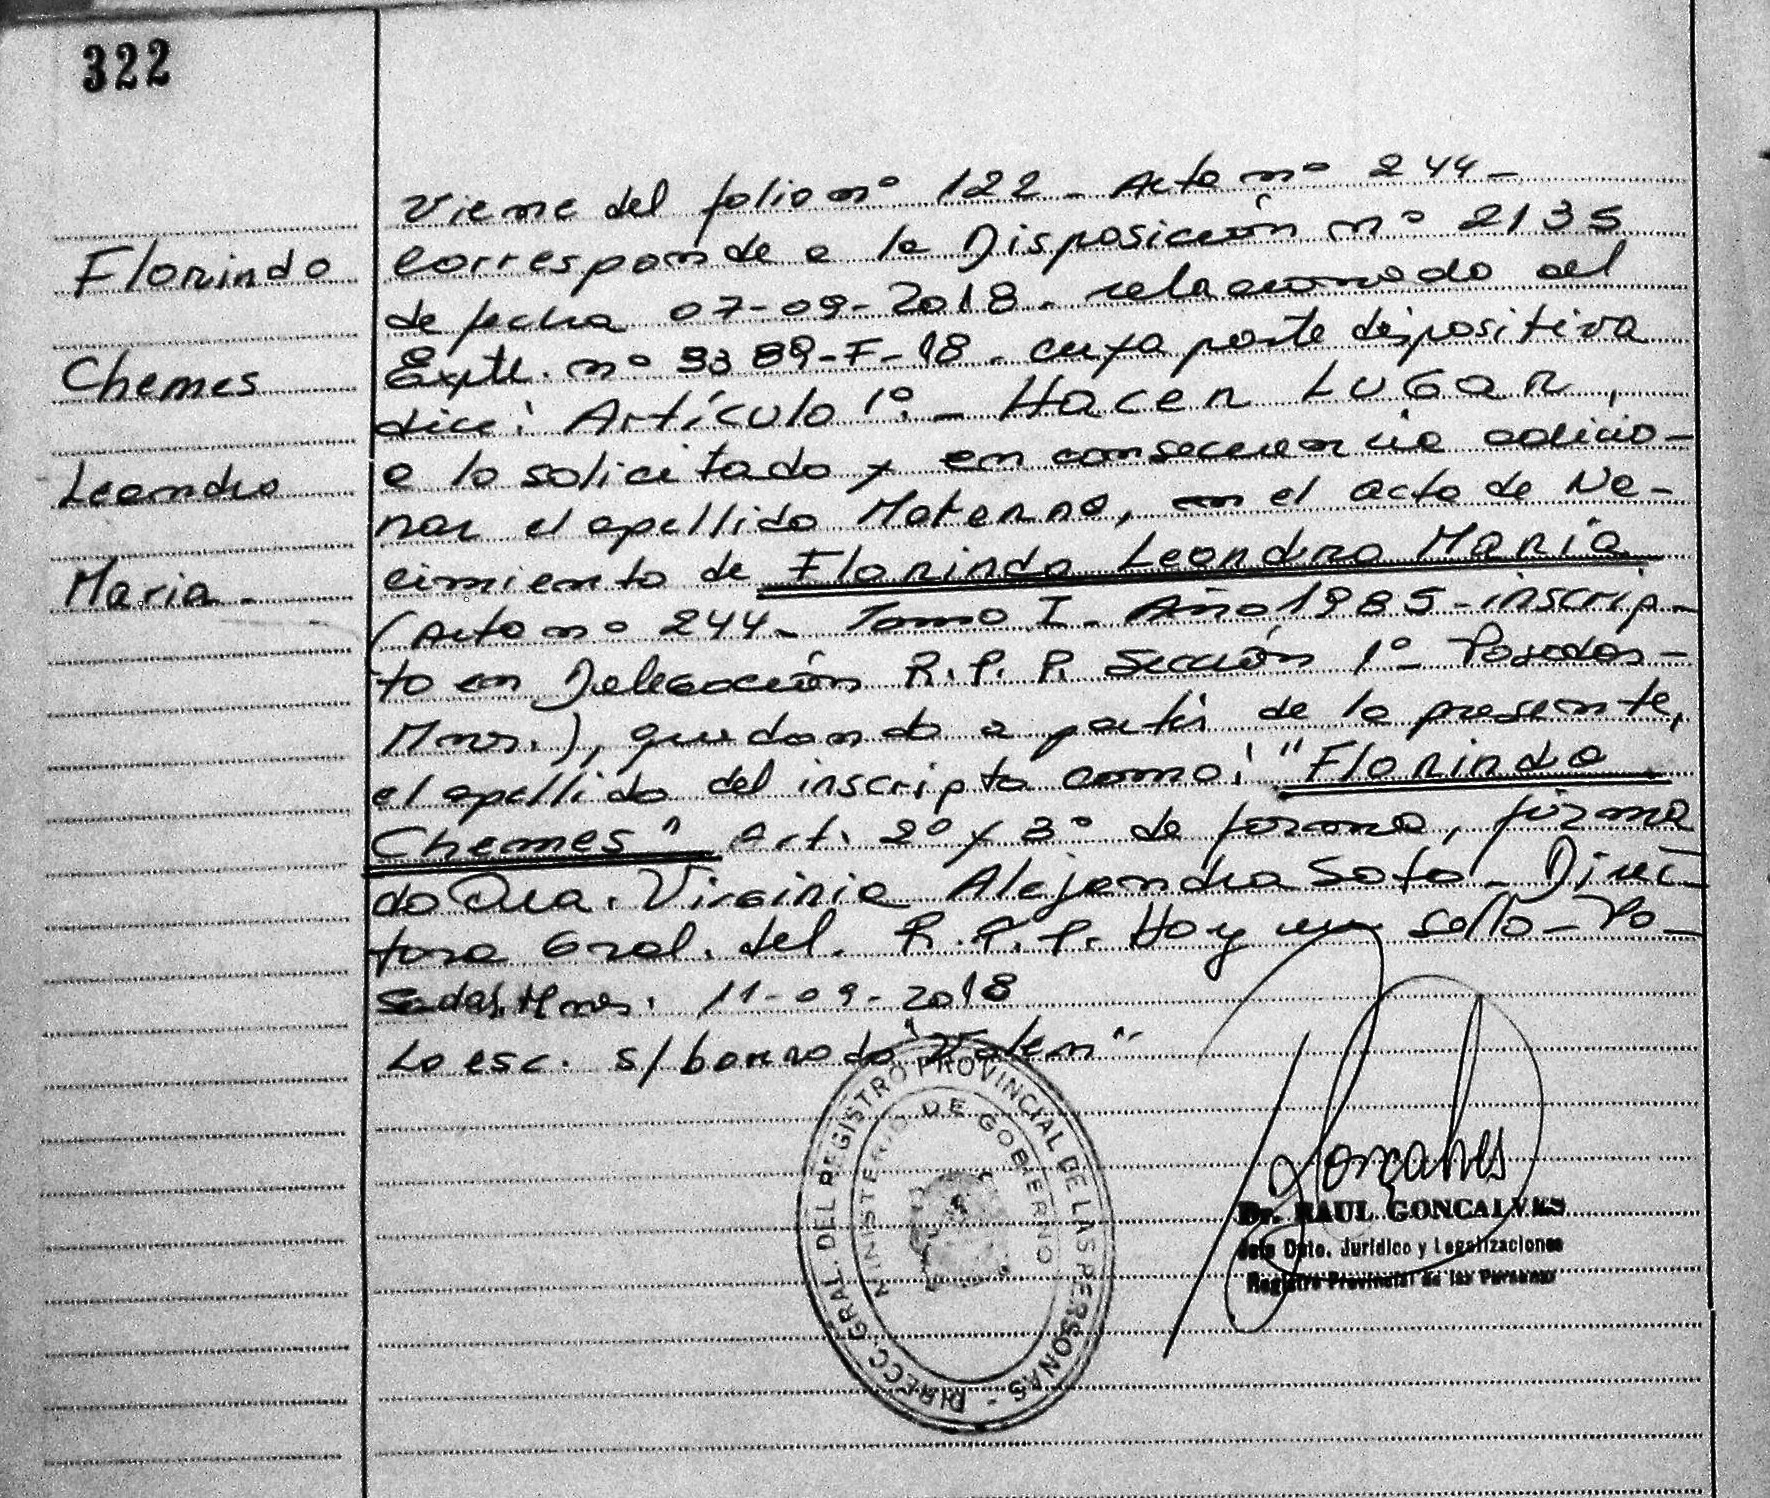 322
Florindo
Chemes
Leandro
Maria.-
Viene del folio nº 122 - Acta nº 244 -
Corresponde a la Disposición nº 2135
de fecha 07-09-2018. relacionado al
Expte. nº 3389-F-18. cuya parte dispositiva
dice: Artículo 1º.- HACER LUGAR,
a lo solicitado y en consecuencia adicio-
nar el apellido Materno, en el acta de Na-
cimiento de Florindo Leandro María
(Acta nº 244 - Tomo I - Año 1985 - inscrip-
to en Delegación R.P.P. Sección 1º - Posadas -
Mnes.), quedando a partir de la presente,
el apellido del inscripto como: "Florindo
Chemes" Art. 2º y 3º de forma, firma
do Dra. Virginia Alejandra Soto - Direc-
tora Gral. del. R.P.P. Hay un sello - Po-
sadas, Mnes. 11-09-2018
Lo esc. s/borrado "Valen"
DIRECC. GRAL. DEL REGISTRO PROVINCIAL DE LAS PERSONAS -
MINISTERIO DE GOBIERNO
Gonçalves
Dr. RAUL GONCALVES
Jefe Dpto. Jurídico y Legalizaciones
Registro Provincial de las Personas